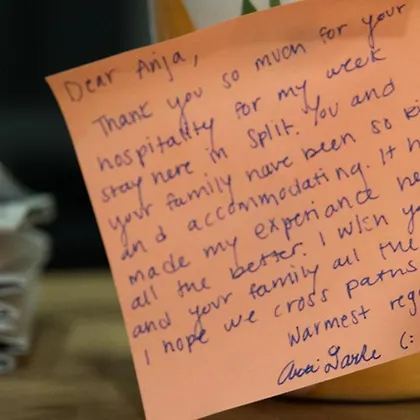 Dear Anja,
Thank you so much for your
hospitality for my week
stay here in Split. You and
your family have been so ki
and accommodating. It h
made my experiance he
all the better. I wish yo
and your family all the
I hope we cross paths
Warmest reg
(: